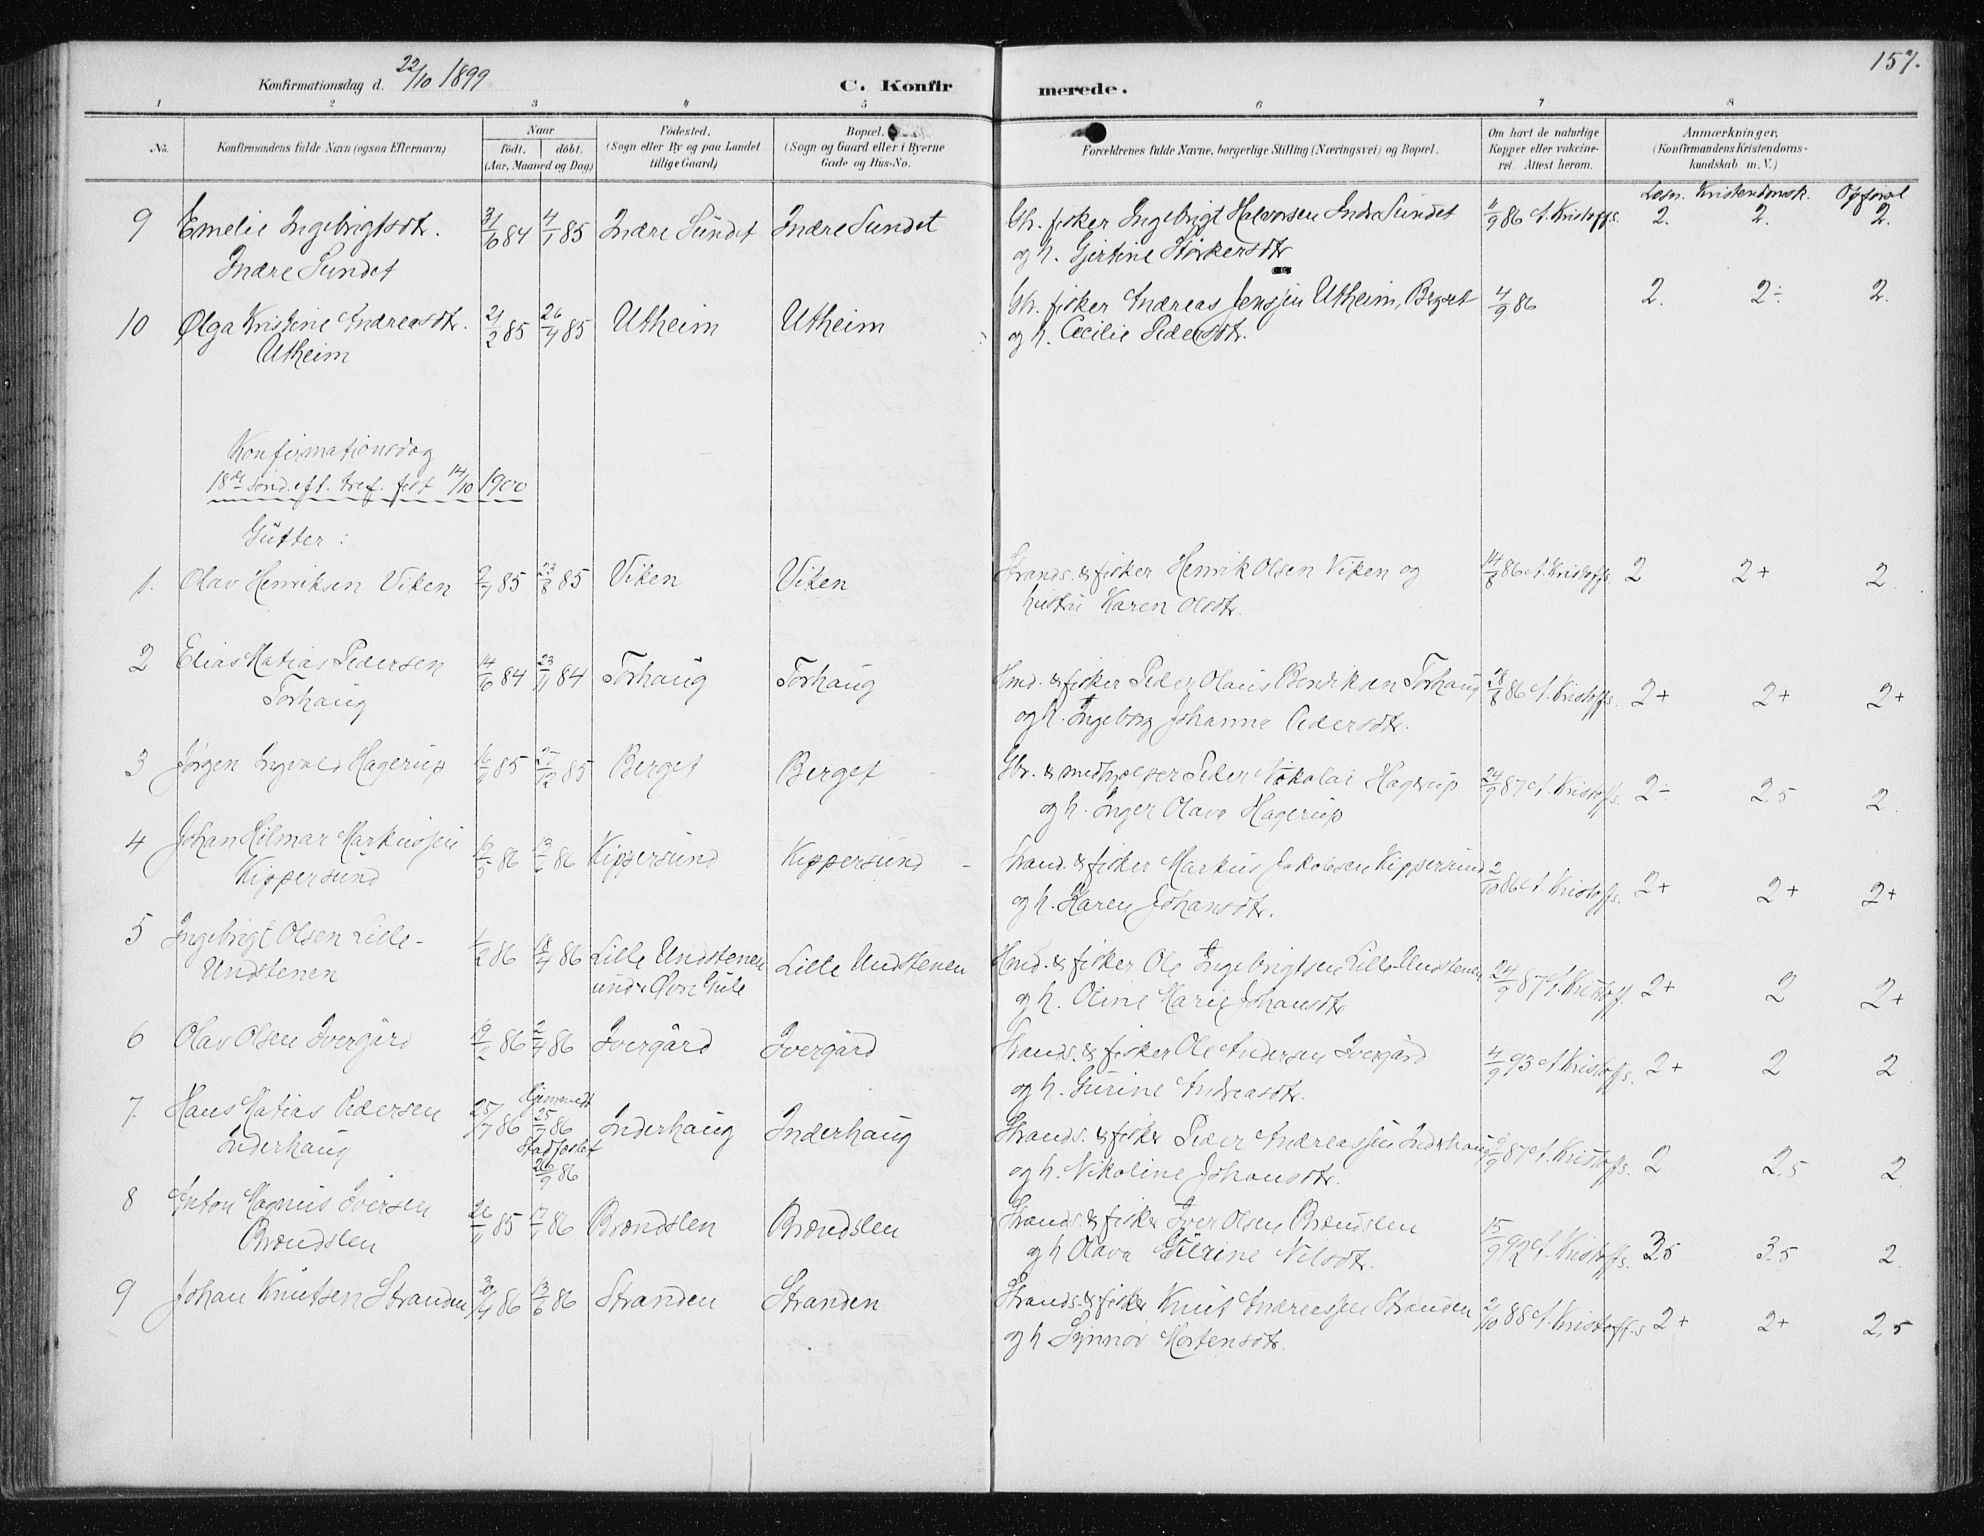 157.
Konfirmationsdag d. 22/10 1899
C. Konfirmerede.
1 2 3 4 5 6 7 8
No. Konfirmandens fulde Navn (ogsaa Efternavn) Naar født. døbt. (Aar, Maaned og Dag) Fødested. (Sogn eller By og paa Landet tillige Gaard) Bopæl. (Sogn og Gaard eller i Byerne Gade og Hus-No. Forældrenes fulde Navne, borgerlige Stilling (Næringsvei) og Bopæl. Om havt de naturlige Kopper eller vakcineret. Attest herom. Anmærkninger. (Konfirmandens Kristendomskundskab m. V.)
Læsn. Kristendomsk. Opførsel
9 Emelie Ingebrigtsdt. 84 4/1 85 Indre Sundet Indre Sundet Gbr. fisker Ingebrigt Halvorsen Indre Sundet 11/9 86 A. Kristoffs. 2. 2. 2.
Indre Sundet og h. Gjertine Størkersdtr
10 Olga Kristine Andreasdt. 21/2 85 26/4 85 Utheim Utheim Gbr. fisker Andreas Jenssen Utheim, 4/9 86 2. 2÷ 2.
Utheim og h. Cecilie Pedersdtr.
Konfirmationsdag
18de sønd. eft. tref. fest 14/10 1900
Gutter:
1. Olav Henriksen Viken 2/7 85 23/8 85 Viken Viken Strands. & fisker Henrik Olsen Viken og 14/8 86 A. Kristoffs. 2 2+ 2.
hustru Karen Olsdtr.
2 Elias Matias Pedersen 84 23/11 84 Torhaug Torhaug Hmd. & fisker Peder Olaus Bendiksen Torhaug 86 A. Kristoffs. 2+ 2+ 2+
Torhaug og h. Ingeborg Johanna Pedersdtr.
3 Jørgen Hagerup 85 85 Berget Berget Gbr. & medhjælper Peder Nikolai Hagerup 24/9 87 A. Kristoffs. 2÷ 2,5 2.
og h. Inger Olava Hagerup
4 Johan Hilmar Markussen 86 13/6 86 Kippersund Kippersund Strand. & fisker Markus Jakobsen Kippersund 2/10 86 A. Kristoffs. 2+ 2+ 2+
Kippersund og h. Karen Johansdtr.
5 Ingebrigt Olsen Lille- 1/2 86 18/4 86 Lille Undstenen Lille Undstenen Hmd. & fisker Ole Ingebrigtsen Lille-Undstenen 24/9 87 A. Kristoff. 2+ 2 2+
Undstenen og h. Oline Marie Johansdtr.
6 Olav Olsen Ivergård 86 2/4 86 Ivergård Ivergård Strands. & fisker Ole Andersen Ivergård 4/9 93 A. Kristoffs. 2+ 2 2
og h. Gurine Andreasdtr.
7. Hans Matias Pedersen 25/7 86 hjemmedt 25/7 86 Stadfæstet 26/9 86 Inderhaug Inderhaug Strands. & fisker Peder Andreassen Inderhaug 87 A. Kristoffs. 2 2,5 2
Inderhaug og h. Nikoline Johansdtr.
8 Anton Magnus Iversen 85 86 Brændslen Brændslen Strands. & fisker Iver Olsen Brændslen 15/9 92 A. Kristoffs. 3,5 3,5 2
Brændslen og h Olava Gurine Nilsdtr.
9 Johan Knutsen Stranden 30/4 86 13/6 86 Stranden Stranden Strands. & fisker Knut Andreassen Stranden 2/10 88 A. Kristoffs 2+ 2+ 2,5
og h Synnøv Mortensdtr.